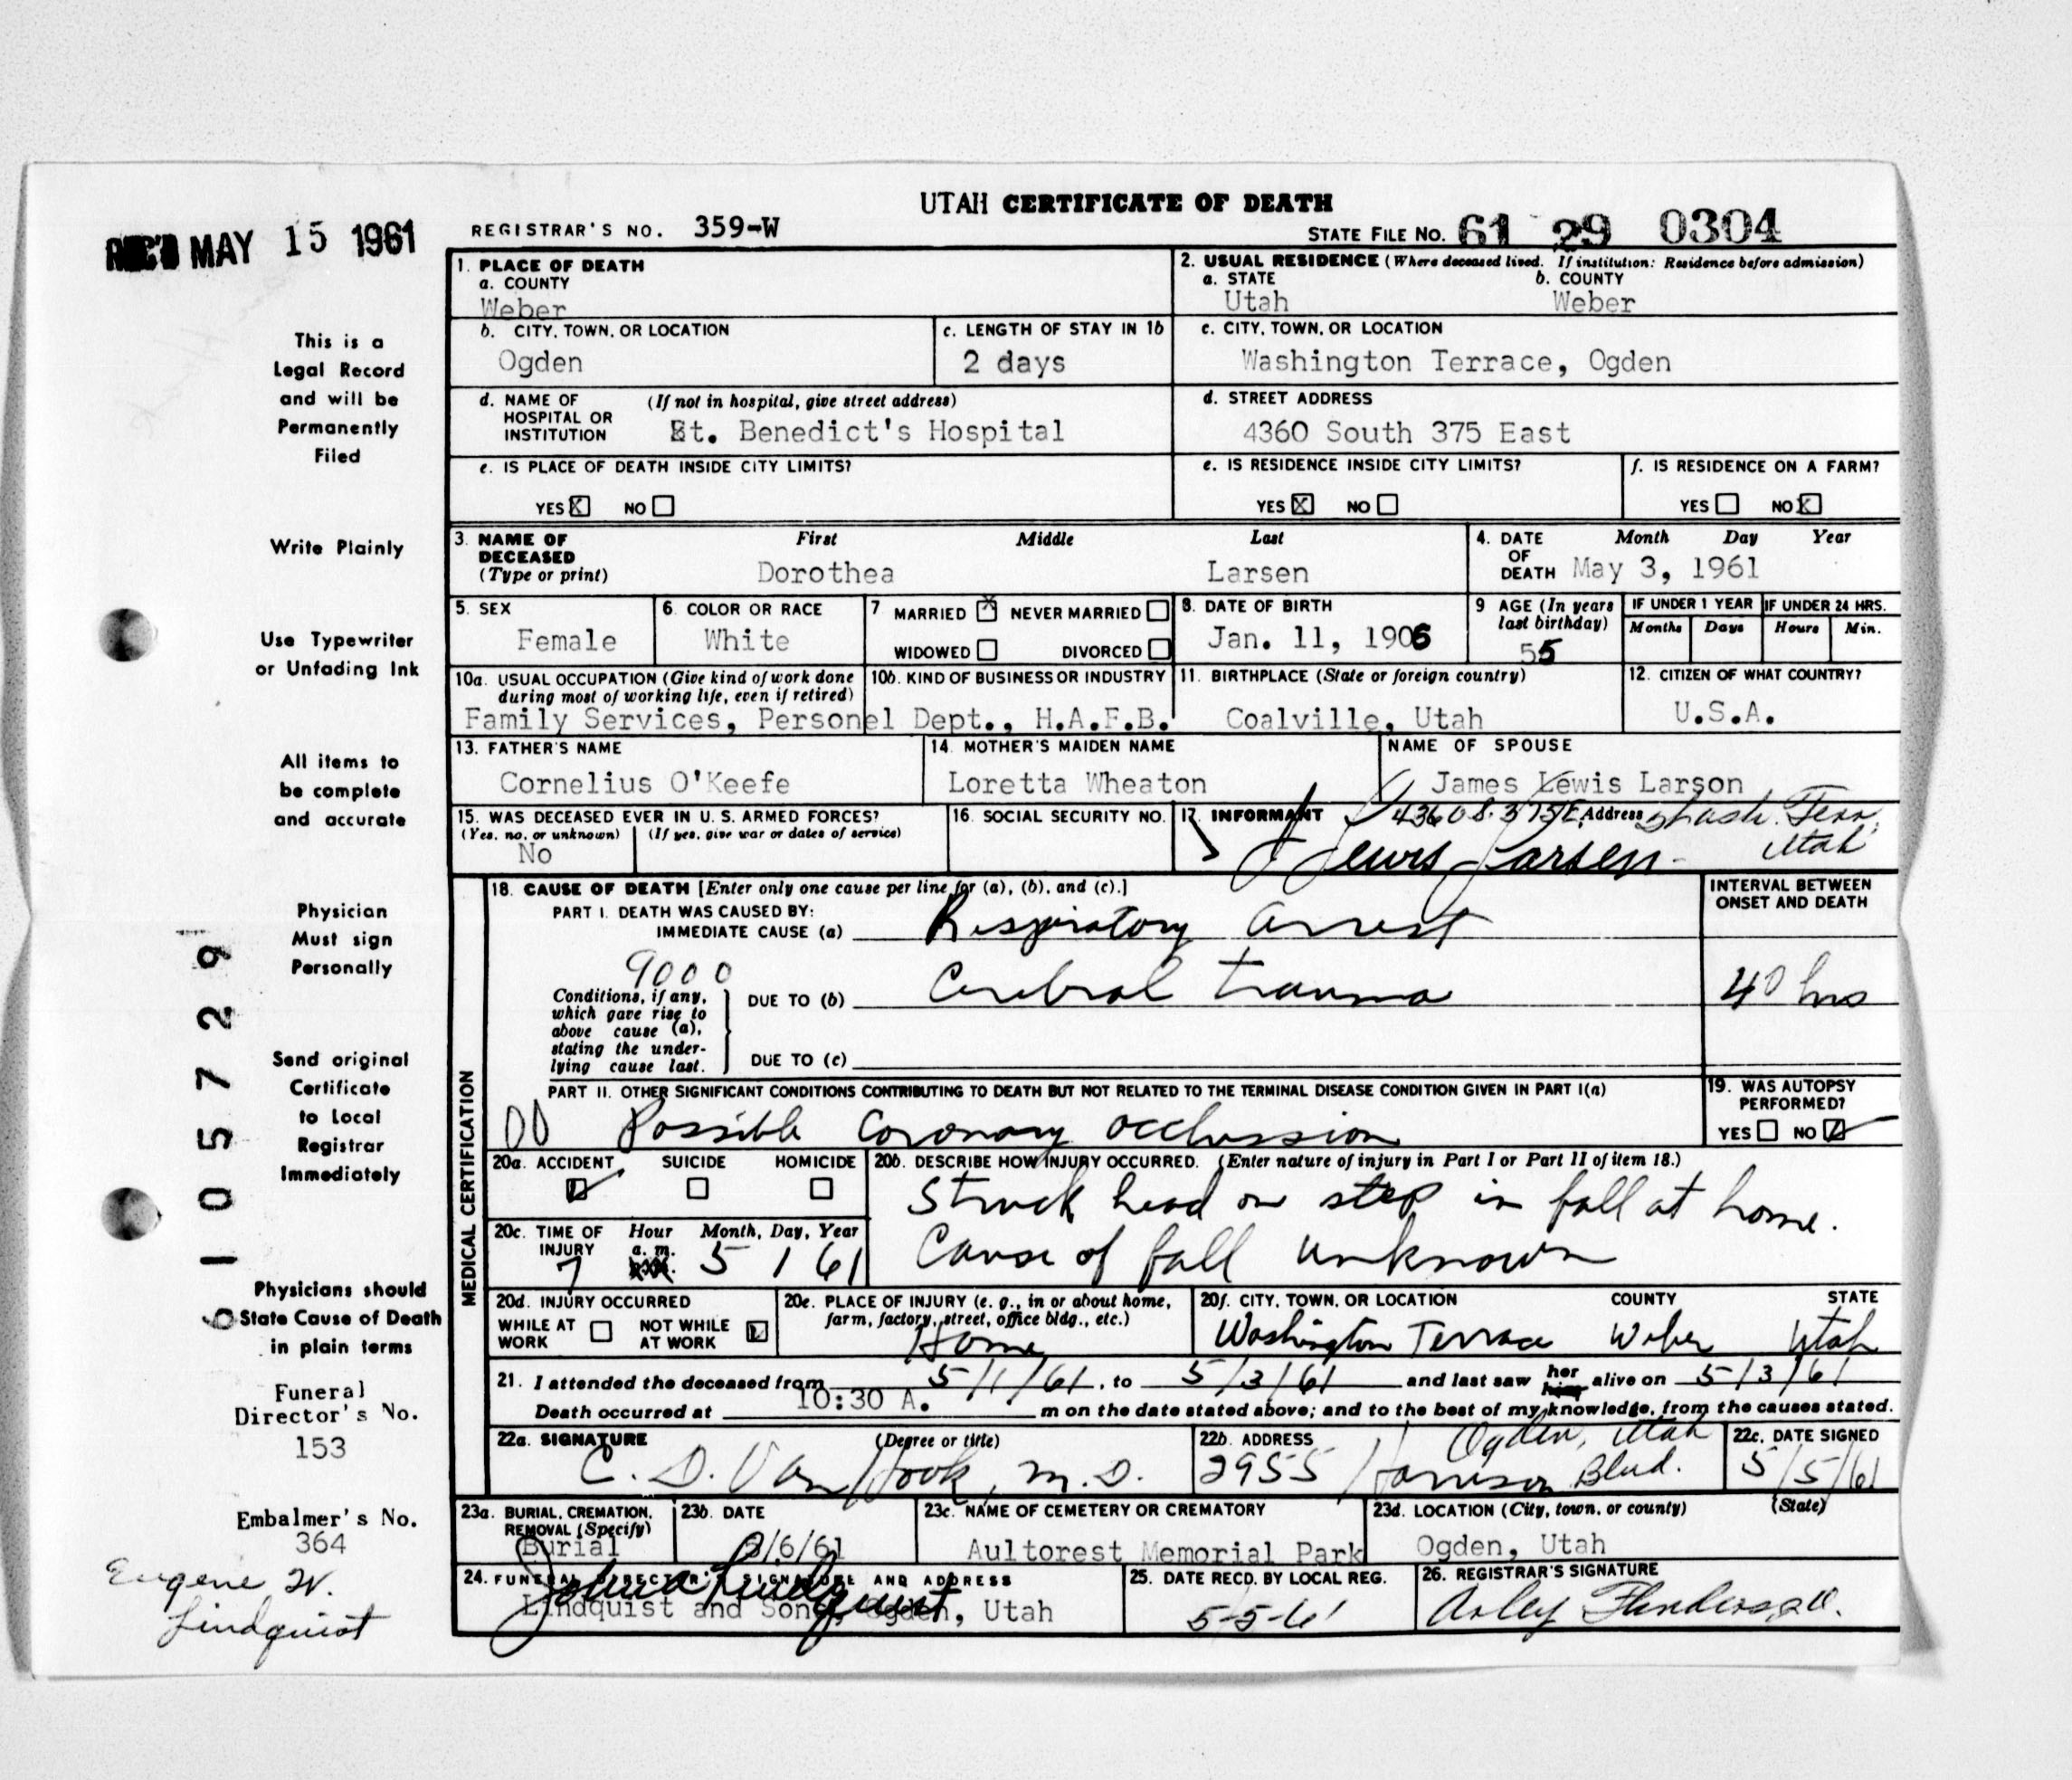 UTAH CERTIFICATE OF DEATH
REC'D MAY 15 1961
REGISTRAR'S NO. 359-W
STATE FILE NO. 61 29 0304
1. PLACE OF DEATH
a. COUNTY
Weber
2. USUAL RESIDENCE (Where deceased lived. If institution: Residence before admission)
a. STATE b. COUNTY
Utah Weber
b. CITY, TOWN, OR LOCATION
Ogden
c. LENGTH OF STAY IN 1b
2 days
c. CITY, TOWN, OR LOCATION
Washington Terrace, Ogden
d. NAME OF HOSPITAL OR INSTITUTION (If not in hospital, give street address)
St. Benedict's Hospital
d. STREET ADDRESS
4360 South 375 East
e. IS PLACE OF DEATH INSIDE CITY LIMITS?
YES X NO
e. IS RESIDENCE INSIDE CITY LIMITS?
YES X NO
f. IS RESIDENCE ON A FARM?
YES NO X
3. NAME OF DECEASED (Type or print)
First Middle Last
Dorothea Larsen
4. DATE OF DEATH Month Day Year
May 3, 1961
5. SEX
Female
6. COLOR OR RACE
White
7 MARRIED X NEVER MARRIED
WIDOWED DIVORCED
8. DATE OF BIRTH
Jan. 11, 1906
9 AGE (In years last birthday)
55
IF UNDER 1 YEAR IF UNDER 24 HRS.
Months Days Hours Min.
10a. USUAL OCCUPATION (Give kind of work done during most of working life, even if retired)
10b. KIND OF BUSINESS OR INDUSTRY
Family Services, Personel Dept., H.A.F.B.
11. BIRTHPLACE (State or foreign country)
Coalville, Utah
12. CITIZEN OF WHAT COUNTRY?
U.S.A.
13. FATHER'S NAME
Cornelius O'Keefe
14. MOTHER'S MAIDEN NAME
Loretta Wheaton
NAME OF SPOUSE
James Lewis Larson
15. WAS DECEASED EVER IN U.S. ARMED FORCES?
(Yes, no, or unknown) (If yes, give war or dates of service)
No
16. SOCIAL SECURITY NO.
17. INFORMANT 4360 S. 375 E. Address Wash. Terr.
Utah
J Lewis Larsen
MEDICAL CERTIFICATION
18. CAUSE OF DEATH [Enter only one cause per line for (a), (b), and (c).]
INTERVAL BETWEEN ONSET AND DEATH
PART I. DEATH WAS CAUSED BY:
IMMEDIATE CAUSE (a) Respiratory arrest
9000
Conditions, if any, which gave rise to above cause (a), stating the underlying cause last.
DUE TO (b) Cerebral trauma 40 hrs
DUE TO (c)
PART II. OTHER SIGNIFICANT CONDITIONS CONTRIBUTING TO DEATH BUT NOT RELATED TO THE TERMINAL DISEASE CONDITION GIVEN IN PART I(a)
Possible coronary occlussion
19. WAS AUTOPSY PERFORMED?
YES NO
20a. ACCIDENT SUICIDE HOMICIDE
20b. DESCRIBE HOW INJURY OCCURRED. (Enter nature of injury in Part I or Part II of item 18.)
Struck head on step in fall at home.
Cause of fall unknown
20c. TIME OF INJURY Hour Month, Day, Year
7 a. m. 5 1 61
20d. INJURY OCCURRED
WHILE AT WORK NOT WHILE AT WORK
20e. PLACE OF INJURY (e. g., in or about home, farm, factory, street, office bldg., etc.)
Home
20f. CITY, TOWN, OR LOCATION COUNTY STATE
Washington Terrace Weber Utah
21. I attended the deceased from 5/1/61, to 5/3/61 and last saw her him alive on 5/3/61
Death occurred at 10:30 A. m on the date stated above; and to the best of my knowledge, from the causes stated.
22a. SIGNATURE (Degree or title)
C. D. Van Hook, M.D.
22b. ADDRESS Ogden, Utah
2955 Harrison Blvd.
22c. DATE SIGNED
5/5/61
23a. BURIAL, CREMATION, REMOVAL (Specify)
Burial
23b. DATE
5/6/61
23c. NAME OF CEMETERY OR CREMATORY
Aultorest Memorial Park
23d. LOCATION (City, town, or county) (State)
Ogden, Utah
24. FUNERAL DIRECTOR'S SIGNATURE AND ADDRESS
Lindquist and Sons, Ogden, Utah
25. DATE RECD. BY LOCAL REG.
5-5-61
26. REGISTRAR'S SIGNATURE
This is a
Legal Record
and will be
Permanently
Filed
Write Plainly
Use Typewriter
or Unfading Ink
All items to
be complete
and accurate
Physician
Must sign
Personally
Send original
Certificate
to Local
Registrar
Immediately
Physicians should
State Cause of Death
in plain terms
Funeral
Director's No.
153
Embalmer's No.
364
Eugene W.
Lindquist
6105729